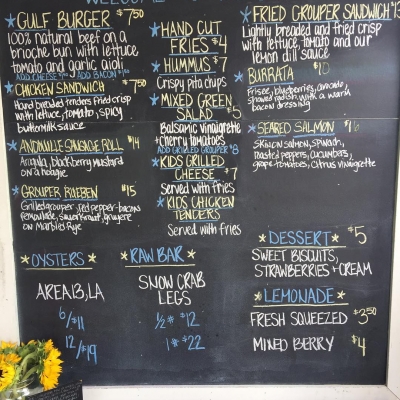 GULF BURGER $7.50
100% natural beef on a
brioche bun with lettuce
tomato and garlic aioli
ADD CHEESE ADD BACON
CHICKEN SANDWICH $7.50
Hand breaded tenders fried crisp
with lettuce, tomato, spicy
buttermilk sauce
ANDOUILLE SAUSAGE ROLL $14
Arugula, blackberry mustard
on a hoagie
GROUPER REUBEN $15
Grilled grouper, red pepper-bacon
remoulade, sauerkraut, gruyere
on Marble Rye
HAND CUT
FRIES $4
HUMMUS $7
Crispy pita chips
MIXED GREEN
SALAD $5
Balsamic vinaigrette
+ cherry tomatoes
ADD GRILLED GROUPER $8
KIDS GRILLED
CHEESE $7
Served with fries
KIDS CHICKEN
TENDERS
Served with fries
FRIED GROUPER SANDWICH
Lightly breaded and fried crisp
with lettuce, tomato and our
lemon dill sauce
BURRATA $10
Frisee, blueberries, avocado,
shaved radish with a warm
bacon dressing
SEARED SALMON
Skin on salmon, spinach,
roasted peppers, cucumbers,
grape tomatoes, citrus vinaigrette
*OYSTERS*
AREA 13, LA
6/$11
12/$19
*RAW BAR*
SNOW CRAB
LEGS
1/2# $12
1# $22
*DESSERT* $5
SWEET BISCUITS,
STRAWBERRIES + CREAM
*LEMONADE*
FRESH SQUEEZED $3.50
MIXED BERRY $4